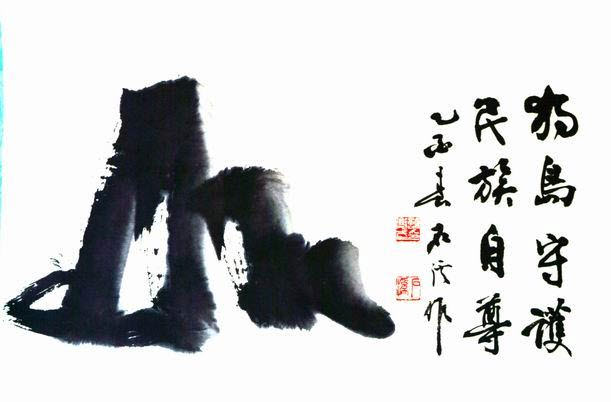 獨島守護
民族自尊
乙酉春石作